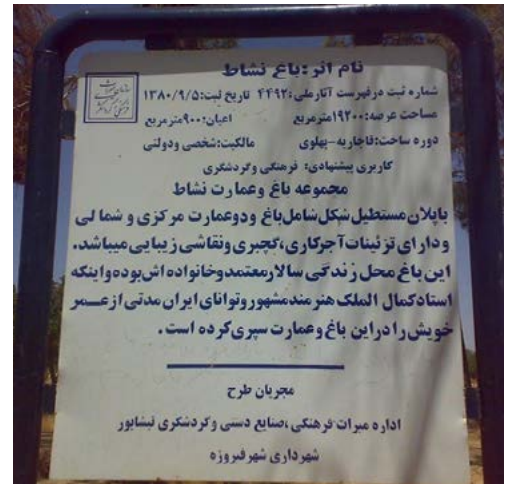 نام اثر: باغ نشاط
شماره ثبت درفهرست آثارملی: ۴۴۹۲ تاریخ ثبت: ۱۳۸۰/۹/۵
مساحت عرصه: ۱۹۲۰۰مترمربع اعیان: ۹۰۰مترمربع
دوره ساخت: قاجاریه-پهلوی مالکیت: شخصی ودولتی
کاربری پیشنهادی: فرهنگی وگردشگری
مجموعه باغ وعمارت نشاط
باپلان مستطیل شکل شامل باغ ودوعمارت مرکزی و شمالی
ودارای تزئینات آجرکاری، گچبری ونقاشی زیبایی میباشد.
این باغ محل زندگی سالارمعتمدوخانواده اش بوده واینکه
استادکمال الملک هنرمندمشهوروتوانای ایران مدتی ازعمر
خویش رادراین باغ وعمارت سپری کرده است.
مجریان طرح
اداره میراث فرهنگی، صنایع دستی وگردشگری نیشابور
شهرداری شهرفیروزه